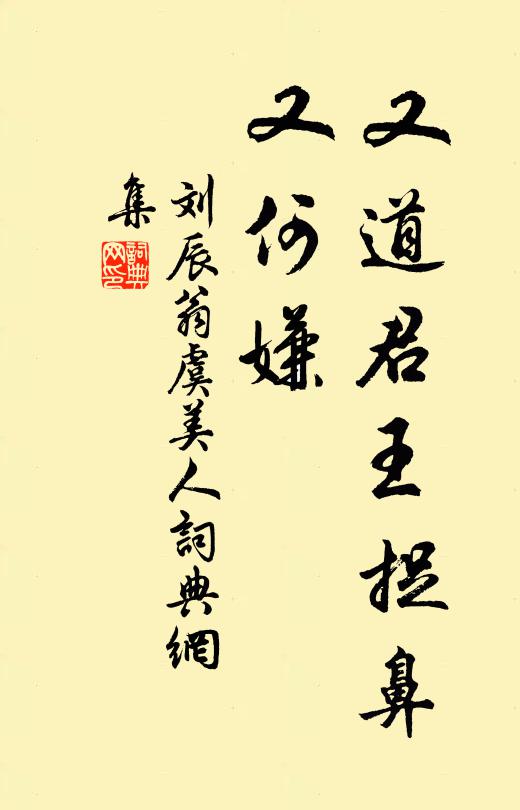 又道君王捉鼻
又何嫌
刘辰翁虞美人詞典網
集
詞典
网印